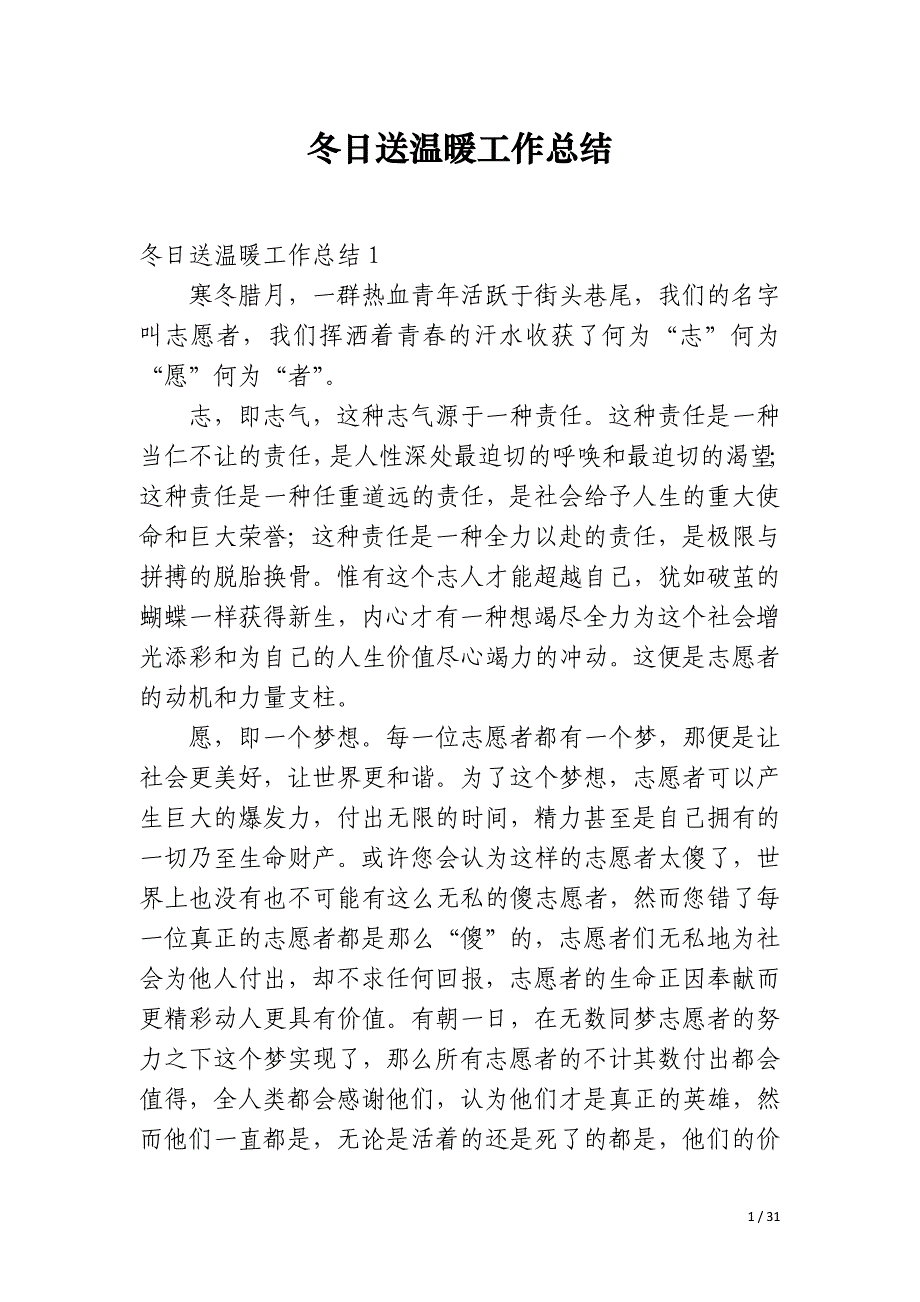 冬日送温暖工作总结
冬日送温暖工作总结 1
寒冬腊月，一群热血青年活跃于街头巷尾，我们的名字
叫志愿者，我们挥洒着青春的汗水收获了何为“志”何为
“愿”何为“者”。
志，即志气，这种志气源于一种责任。这种责任是一种
当仁不让的责任，是人性深处最迫切的呼唤和最迫切的渴望；
这种责任是一种任重道远的责任，是社会给予人生的重大使
命和巨大荣誉；这种责任是一种全力以赴的责任，是极限与
拼搏的脱胎换骨。惟有这个志人才能超越自己，犹如破茧的
蝴蝶一样获得新生，内心才有一种想竭尽全力为这个社会增
光添彩和为自己的人生价值尽心竭力的冲动。这便是志愿者
的动机和力量支柱。
愿，即一个梦想。每一位志愿者都有一个梦，那便是让
社会更美好，让世界更和谐。为了这个梦想，志愿者可以产
生巨大的爆发力，付出无限的时间，精力甚至是自己拥有的
一切乃至生命财产。或许您会认为这样的志愿者太傻了，世
界上也没有也不可能有这么无私的傻志愿者，然而您错了每
一位真正的志愿者都是那么“傻”的，志愿者们无私地为社
会为他人付出，却不求任何回报，志愿者的生命正因奉献而
更精彩动人更具有价值。有朝一日，在无数同梦志愿者的努
力之下这个梦实现了，那么所有志愿者的不计其数付出都会
值得，全人类都会感谢他们，认为他们才是真正的英雄，然
而他们一直都是，无论是活着的还是死了的都是，他们的价
1 / 31